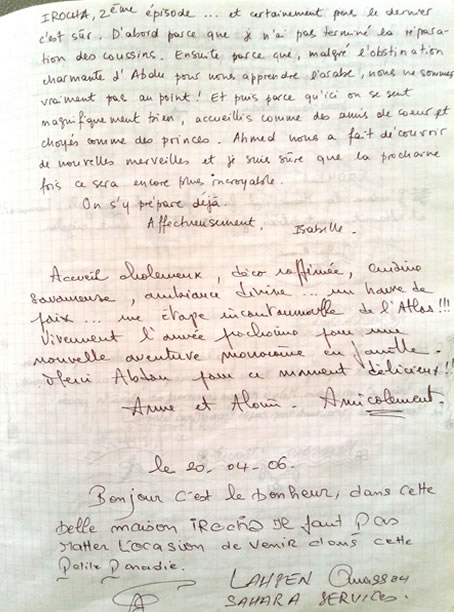 IROCHA, 2ème épisode ... et certainement pas le dernier
c'est sûr. D'abord parce que je n'ai pas terminé la répara-
tion des coussins. Ensuite parce que, malgré l'obstination
charmante d'Abdu pour nous apprendre l'arabe, nous ne sommes
vraiment pas au point ! Et puis parce qu'ici on se sent
magnifiquement bien, accueillis comme des amis de coeur et
choyés comme des princes. Ahmed nous a fait découvrir
de nouvelles merveilles et je suis sûre que la prochaine
fois ce sera encore plus incroyable.
On s'y prépare déjà.
Affectueusement. Isabelle.
Accueil chaleureux, déco raffinée, cuisine
savoureuse, ambiance divine ... un havre de
paix ... une étape incontournable de l'Atlas !!!
Vivement l'année prochaine pour une
nouvelle aventure marocaine en famille.
Merci Abdou pour ce moment délicieux !!
Anne et Alain. Amicalement.
le 20-04-06.
Bonjour c'est le bonheur, dans cette
belle maison iRocha Ne faut Pas
Ratter L'ocasion de venir dans cette
Petite Paradie.
LAHSEN
SAHARA SERVICES.